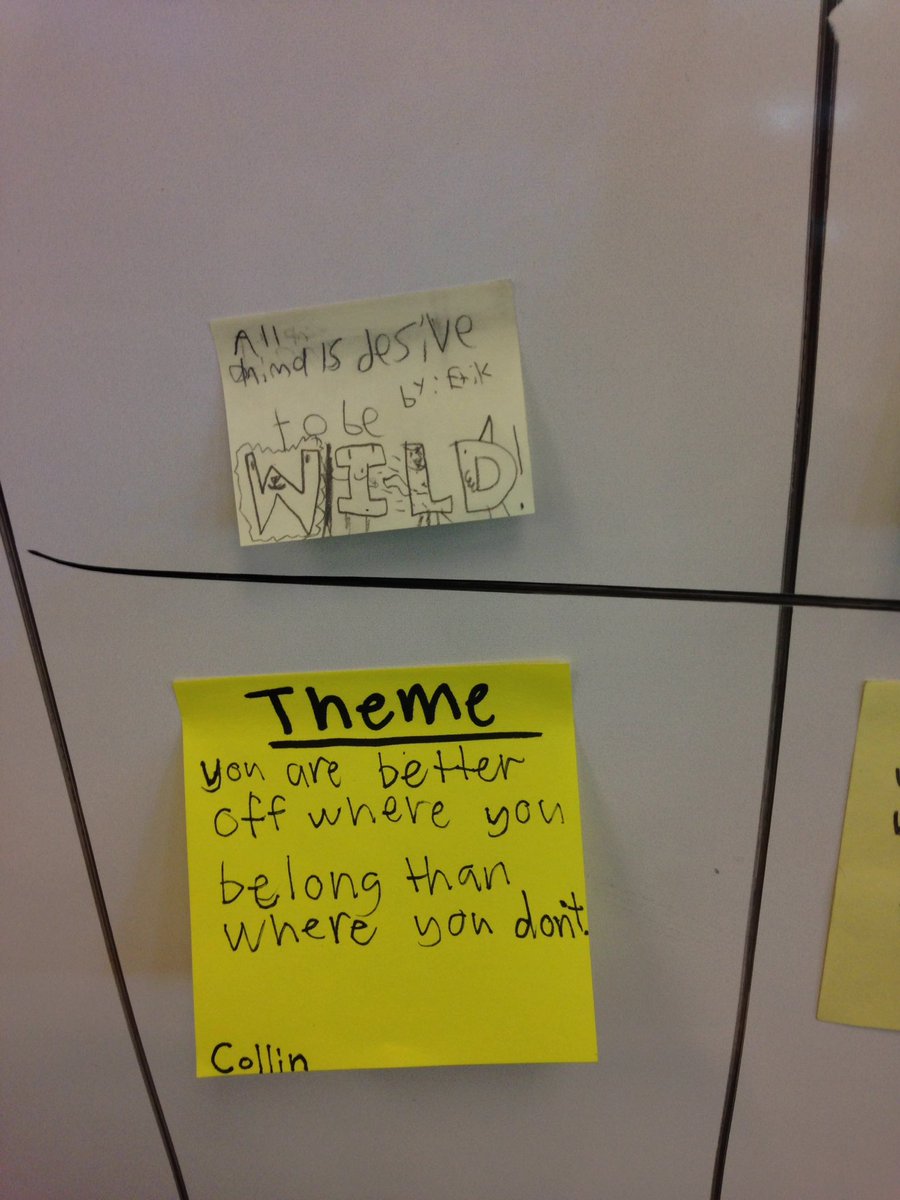 All
animals desive
by: Erik
to be
WILD!
Theme
you are better
off where you
belong than
where you don't.
Collin